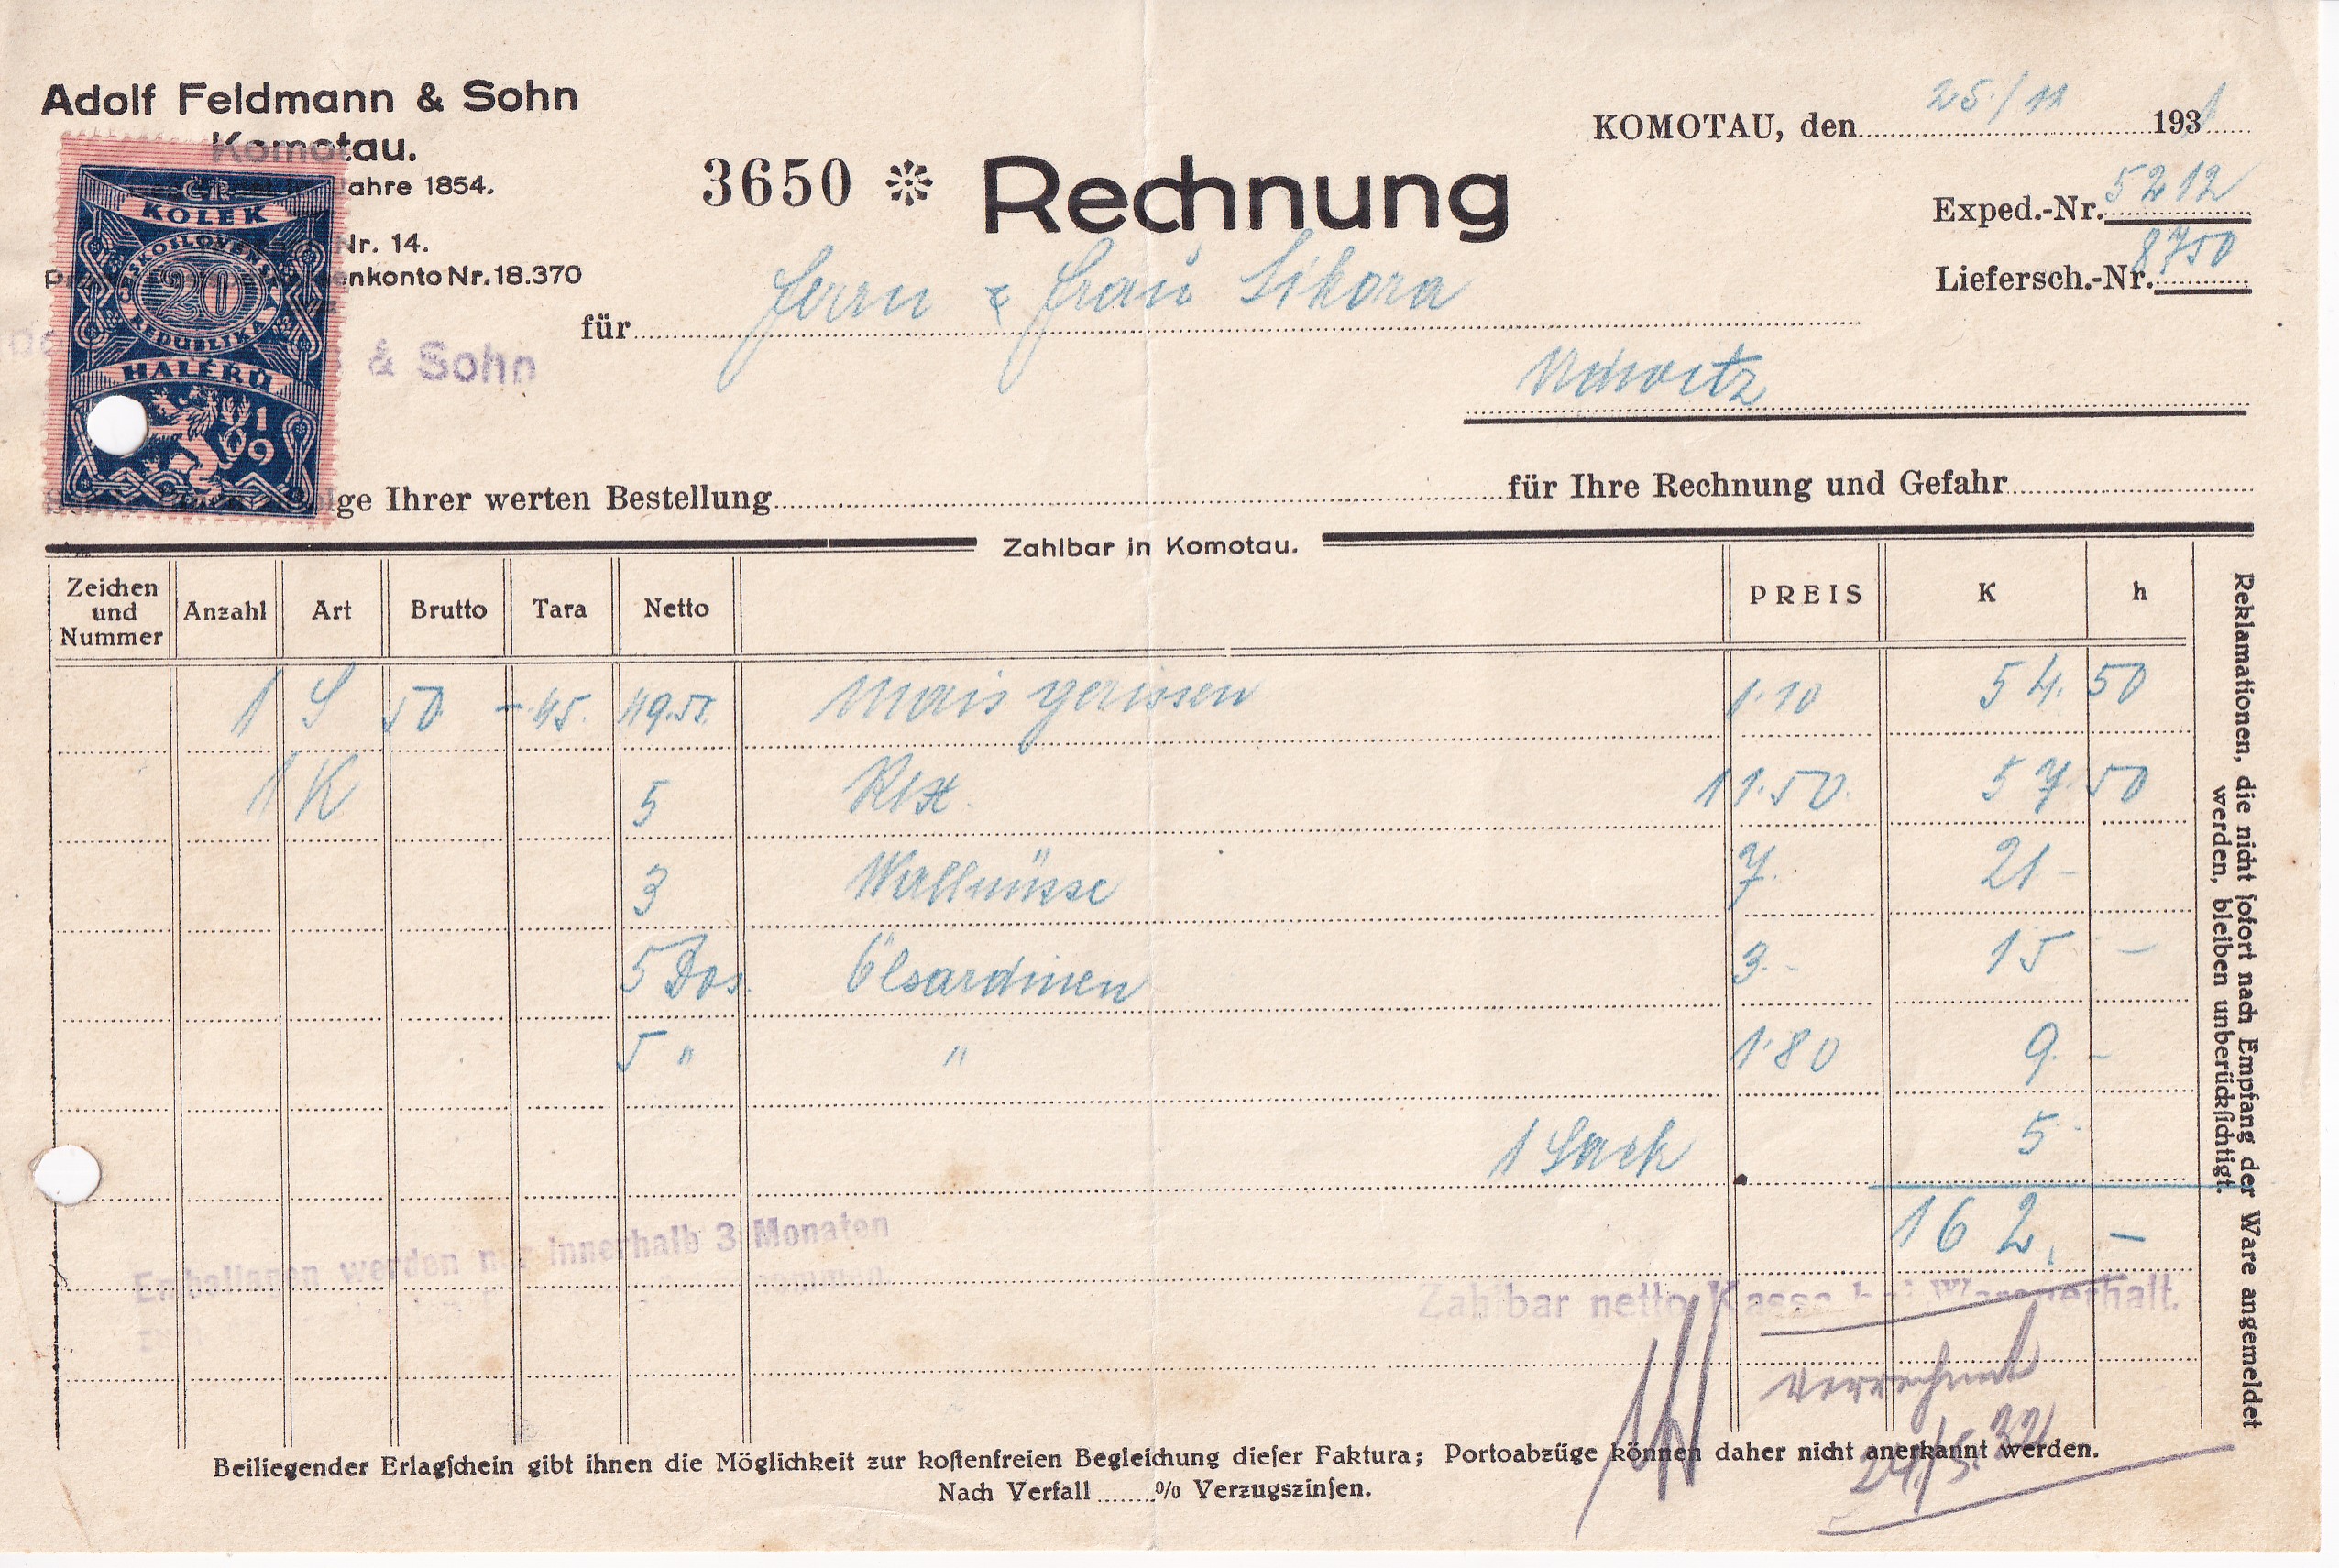 Adolf Feldmann & Sohn
Komotau.
Jahre 1854.
Nr. 14.
enkonto Nr. 18.370
& Sohn
Č.S.R.
KOLEK
ČESKOSLOVENSKÁ
20
REPUBLIKA
HALÉŘŮ
19
3650 ❊ Rechnung
KOMOTAU, den 25/11 1931
Exped.-Nr. 5212
Liefersch.-Nr. 8750
für Herrn & Frau Sikora
lge Ihrer werten Bestellung für Ihre Rechnung und Gefahr
Zahlbar in Komotau.
Zeichen und Nummer Anzahl Art Brutto Tara Netto PREIS K h
1 S 50 -.45. 49.55. Mais gerissen 1.10 54. 50
1 K 5 11.50. 57. 50
3 Wallnüsse 7. 21 -
5 Dos. Ölsardinen 3.- 15 -
5 " " 1.80 9. -
1 Sack 5.-
162. -
Emballagen werden nur innerhalb 3 Monaten
Zahlbar netto Kassa bei Warenerhalt.
verrechnet
24./5. 32
Beiliegender Erlagschein gibt ihnen die Möglichkeit zur kostenfreien Begleichung dieser Faktura; Portoabzüge können daher nicht anerkannt werden.
Nach Verfall ........% Verzugszinsen.
Reklamationen, die nicht sofort nach Empfang der Ware angemeldet
werden, bleiben unberücksichtigt.